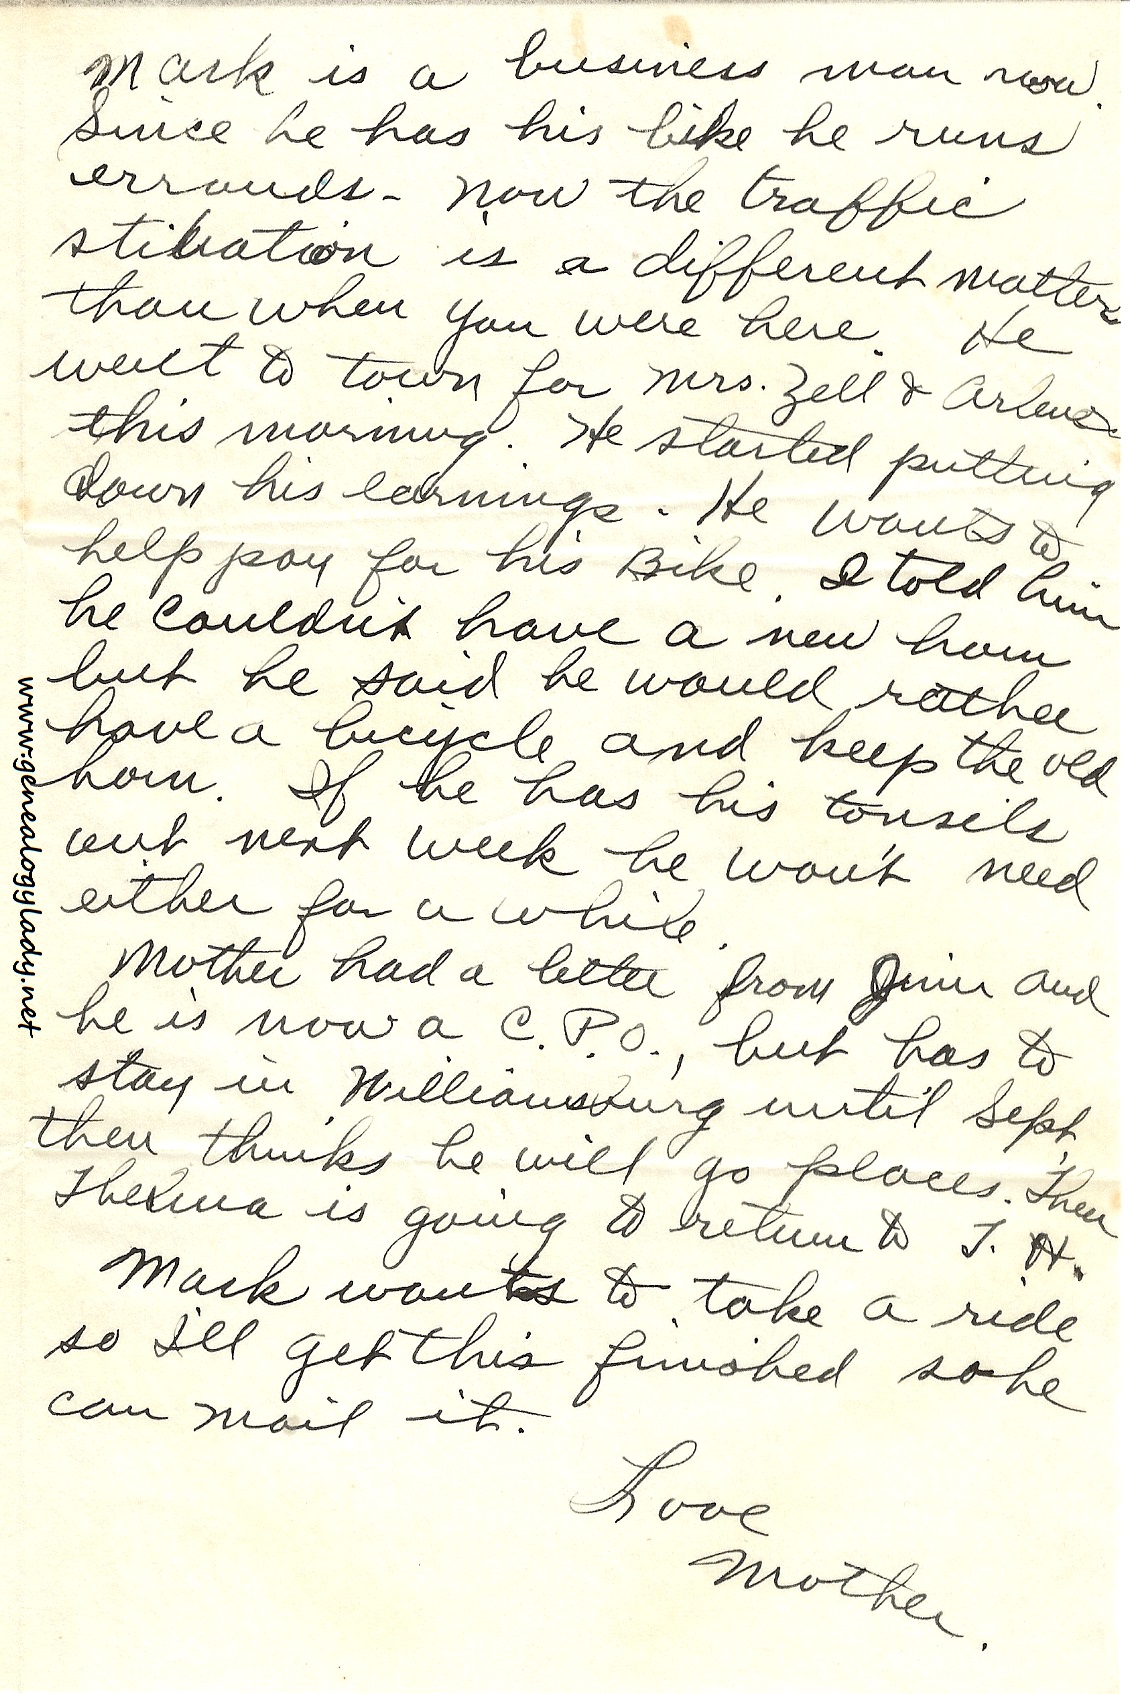 Mark is a business man now.
Since he has his bike he runs
errands - Now the traffic
stituation is a different matter
than when you were here. He
went to town for Mrs. Zell & Arlene
this morning. He started putting
down his earnings. He wants to
help pay for his Bike. I told him
he couldn't have a new horn
but he said he would rather
have a bicycle and keep the old
horn. If he has his tonsils
out next week he won't need
either for a while.
Mother had a letter from Jim and
he is now a C.P.O., but has to
stay in Williamsburg until Sept,
then thinks he will go places. Then
Thelma is going to return to T. H.
Mark wants to take a ride
so I'll get this finished so he
can mail it.
Love
Mother.
www.genealogylady.net